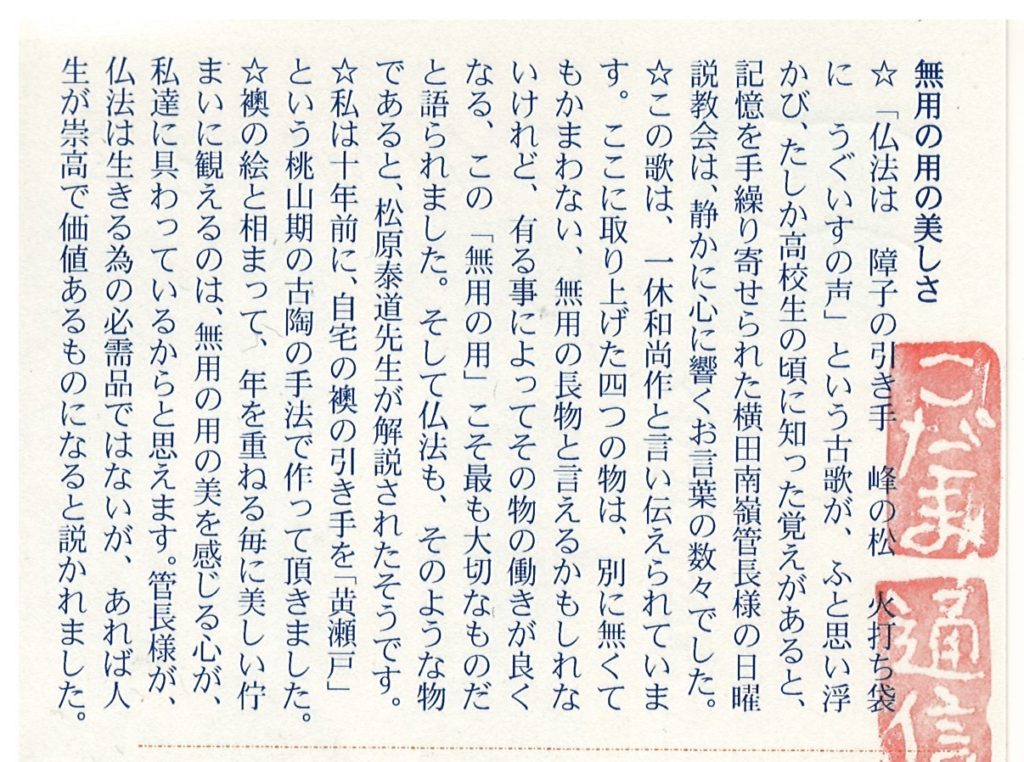 無用の用の美しさ
☆「仏法は　障子の引き手　峰の松　火打ち袋
に　うぐいすの声」という古歌が、ふと思い浮
かび、たしか高校生の頃に知った覚えがあると、
記憶を手繰り寄せられた横田南嶺管長様の日曜
説教会は、静かに心に響くお言葉の数々でした。
☆この歌は、一休和尚作と言い伝えられていま
す。ここに取り上げた四つの物は、別に無くて
もかまわない、無用の長物と言えるかもしれな
いけれど、有る事によってその物の働きが良く
なる、この「無用の用」こそ最も大切なものだ
と語られました。そして仏法も、そのような物
であると、松原泰道先生が解説されたそうです。
☆私は十年前に、自宅の襖の引き手を「黄瀬戸」
という桃山期の古陶の手法で作って頂きました。
☆襖の絵と相まって、年を重ねる毎に美しい佇
まいに観えるのは、無用の用の美を感じる心が、
私達に具わっているからと思えます。管長様が、
仏法は生きる為の必需品ではないが、あれば人
生が崇高で価値あるものになると説かれました。
こだま
通信